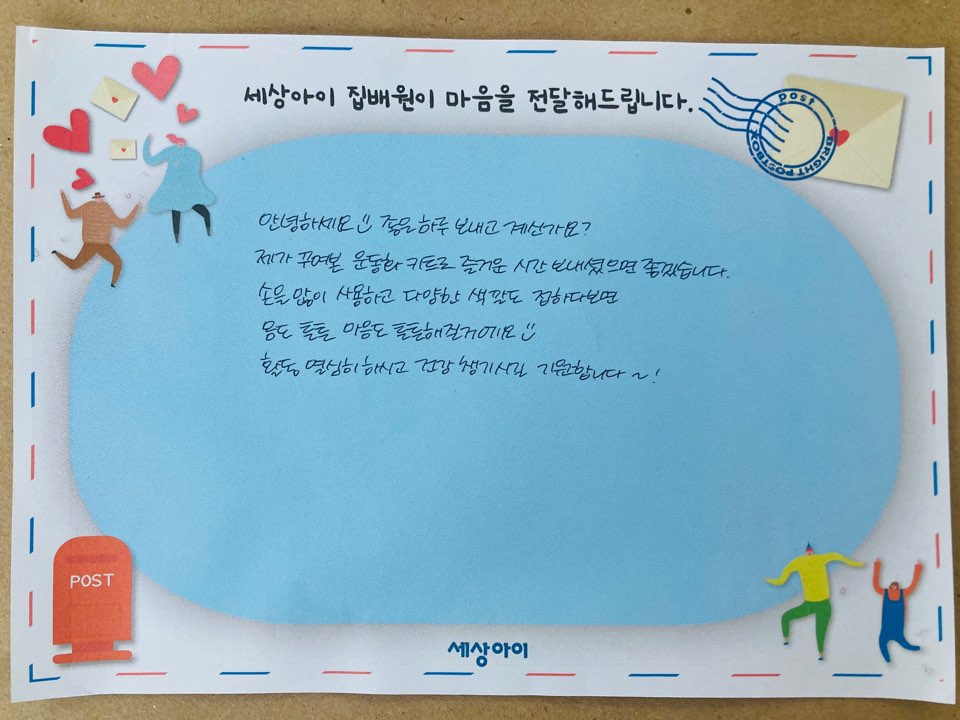 세상아이 집배원이 마음을 전달해드립니다.
post
BRIGHT POSTBOX
안녕하세요 좋은하루 보내고 계신가요?
제가 꾸며본 운동화 키트로 즐거운 시간 보내셨으면 좋겠습니다.
손을 많이 사용하고 다양한 색깔도 접하다보면
몸도 튼튼 마음도 튼튼해질거에요
활동 열심히 하시고 건강 챙기시길 기원합니다~!
POST
세상아이